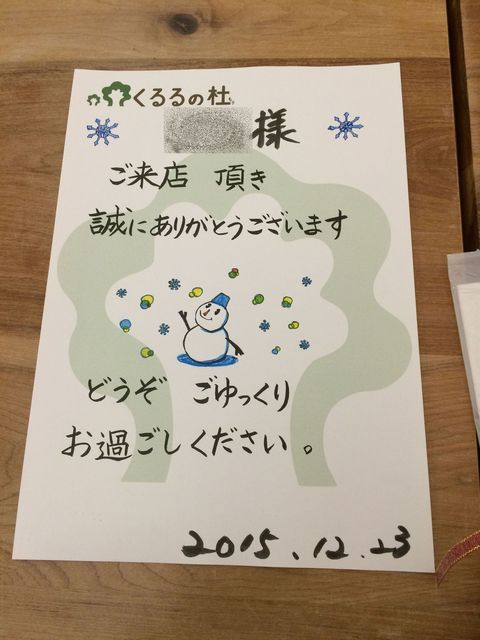 くるるの杜
様
ご来店 頂き
誠にありがとうございます
どうぞ ごゆっくり
お過ごしください。
2015.12.23